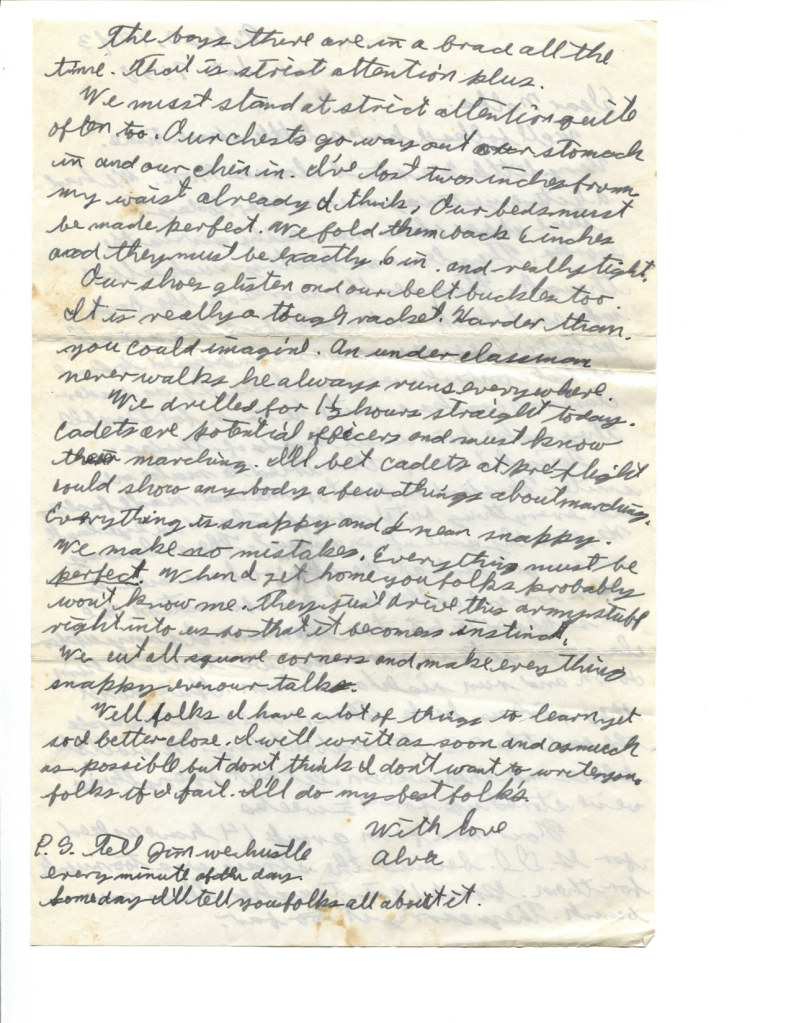 The boys there are in a brad all the
time. That is strict attention plus.
We must stand at strict attention quite
often too. Our chests go way out our stomach
in and our chin in. I've lost two inches from
my waist already I think, Our beds must
be made perfect. We fold them back 6 inches
and they must be exactly 6 in. and really tight.
Our shoes glisten and our belt buckles too.
It is really a tough racket. Harder than
you could imagine. An under classman
never walks he always runs everywhere.
We drilled for 1½ hours straight today.
Cadets are potential officers and must know
their marching. I'll bet cadets at preflight
could show any body a few things about marching.
Everything is snappy and I mean snappy.
We make no mistakes. Everything must be
perfect. When I get home you folks probably
won't know me. They just drive this army stuff
right into us so that it becomes instinct.
We cut all square corners and make everything
snappy even our talk.
Well folks I have a lot of things to learn yet
so I better close. I will write as soon and as much
as possible but don't think I don't want to write you
folks if I fail. I'll do my best folks.
With love
Alva
P.S. Tell Jim we hustle
every minute of the day.
Some day I'll tell you folks all about it.